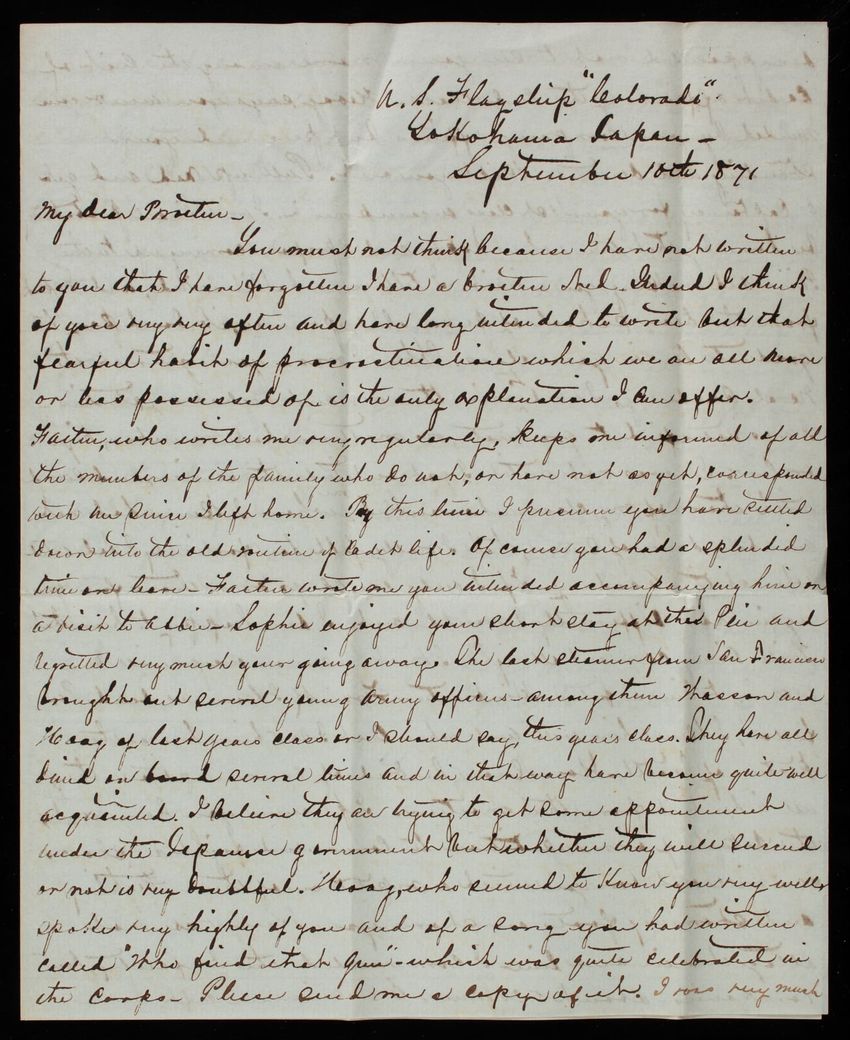 U. S. Flagship "Colorado".
Yokohama Japan -
September 10th 1871
My dear Brother -
You must not think because I have not written
to you that I have forgotten I have a brother Ned. Indeed I think
of you very very often and have long intended to write but that
fearful habit of procrastination which we are all more
or less possessed of is the only explanation I can offer.
Father, who writes me very regularly, keeps me informed of all
the members of the family who do not, or have not as yet, corresponded
with me since I left home. By this time I presume you have settled
down into the old routine of Cadet life. Of course you had a splendid
time on leave - Father wrote me you intended accompanying him on
a visit to Abbie - Sophie enjoyed your short stay at the Pier and
regretted very much your going away. The last steamer from San Francisco
brought out several young Army officers - among them Wasson and
Hoag of last years class or I should say, this years class. They have all
dined on board several times and in that way have become quite well
acquainted. I believe they are trying to get some appointment
under the Japanese government but whether they will succeed
or not is very doubtful. Hoag, who seemed to know you very well,
spoke very highly of you and of a song you had written
called "Who find that gun" - which was quite celebrated in
the Corps - Please send me a copy of it. I was very much